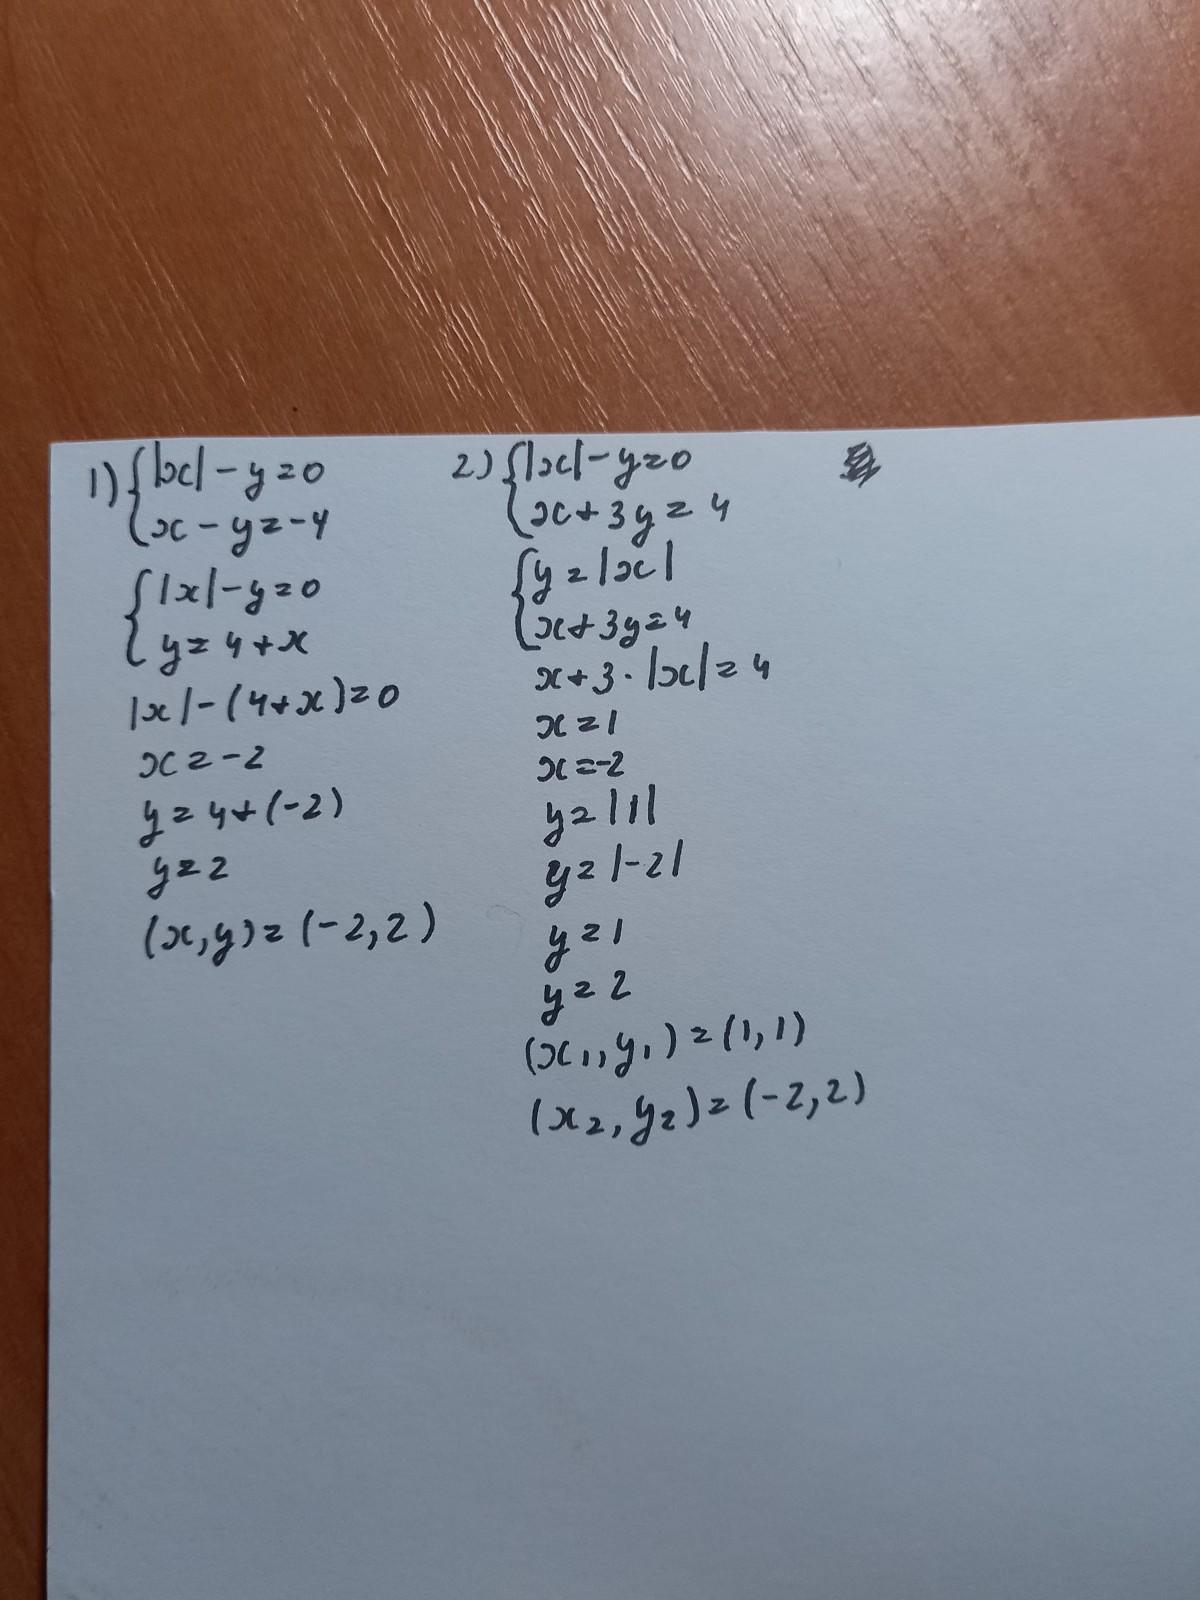 1) {|x| - y = 0
{x - y = -4
{|x| - y = 0
{y = 4 + x
|x| - (4 + x) = 0
x = -2
y = 4 + (-2)
y = 2
(x, y) = (-2, 2)
2) {|x| - y = 0
{x + 3y = 4
{y = |x|
{x + 3y = 4
x + 3 · |x| = 4
x = 1
x = -2
y = |1|
y = |-2|
y = 1
y = 2
(x₁, y₁) = (1, 1)
(x₂, y₂) = (-2, 2)